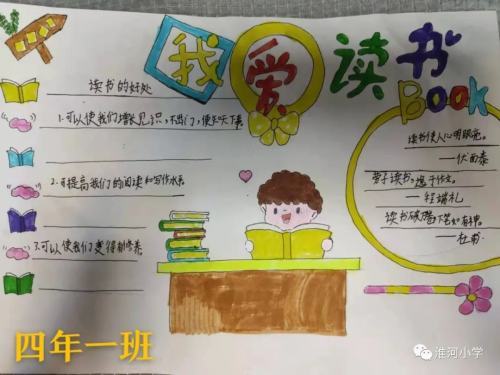 我爱读书
Book
读书的好处
1.可以使我们增长见识，不出门，便知天下事
2.可提高我们的阅读和写作水平
3.可以使我们变得有修养
读书使人心明眼亮。
——伏尔泰
劳于读书，逸于作文。
——程端礼
读书破万卷下笔如有神。
——杜甫
四年一班
淮河小学